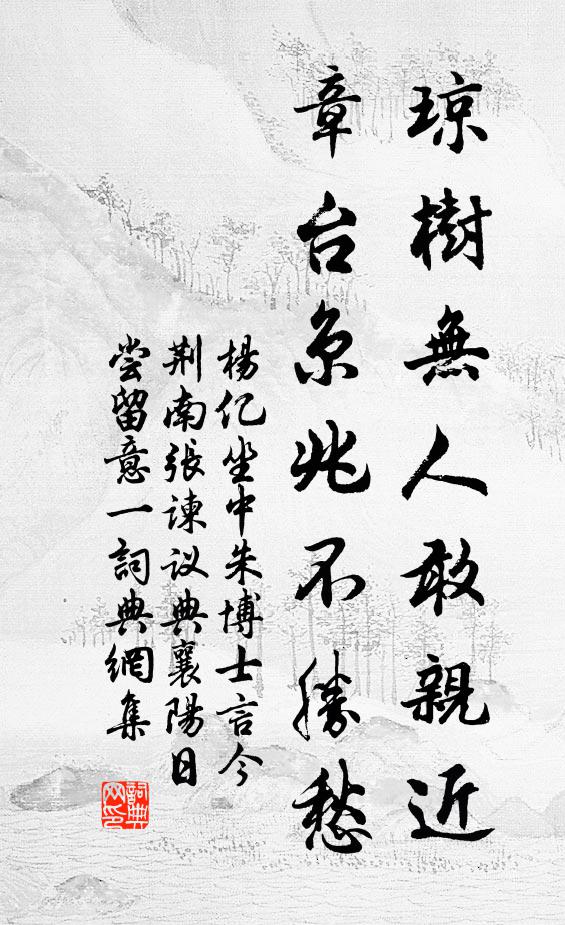 琼樹無人敢親近
章台京兆不勝愁
楊亿坐中朱博士言今
荆南張諫议典襄陽日
尝留意一詞典網集
詞典
网印